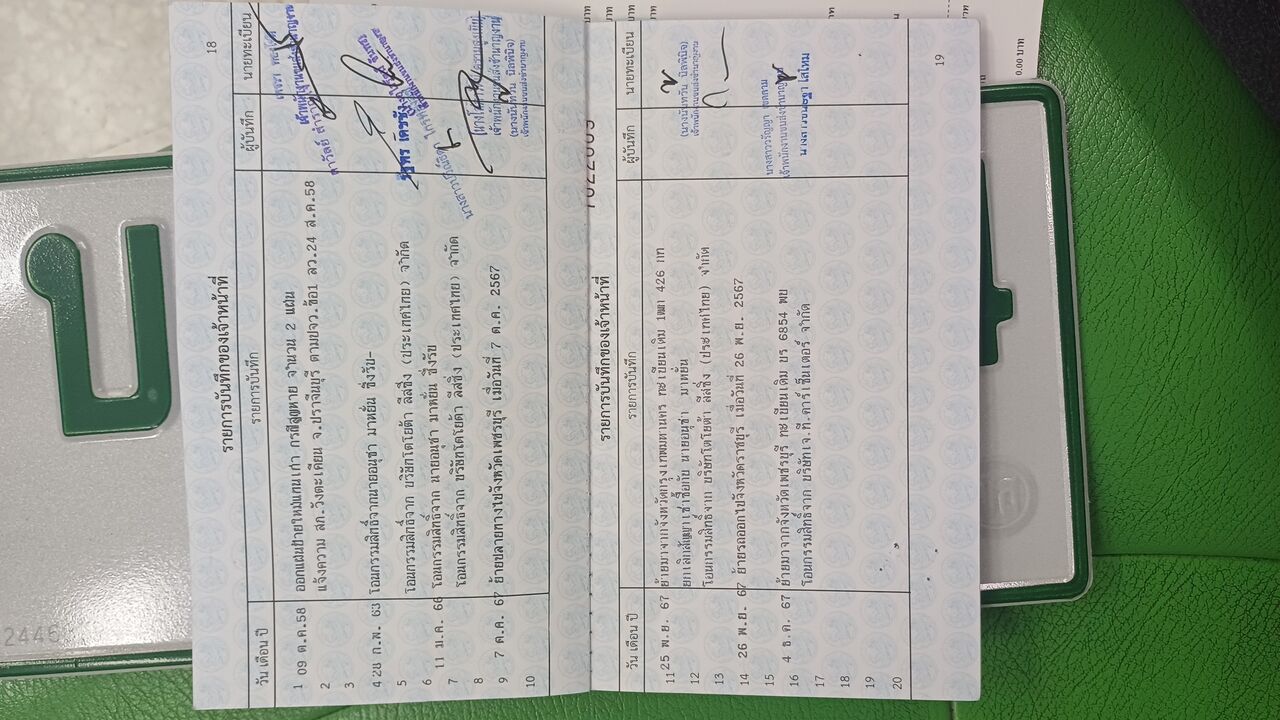 18
รายการบันทึกของเจ้าหน้าที่
วัน เดือน ปี รายการบันทึก ผู้บันทึก นายทะเบียน
1 09 ต.ค.58 ออกแผ่นป้ายใหม่แทนเก่า กรณีสูญหาย จำนวน 2 แผ่น
2 แจ้งความ สภ.วังตะเคียน จ.ปราจีนบุรี ตามปจว.ข้อ1 ลว.24 ส.ค.58
3
4 28 ก.พ. 63 โอนกรรมสิทธิ์จากนายอนุชา มาหยั่น ซึ่งรับ-
5 โอนกรรมสิทธิ์จาก บริษัทโตโยต้า ลีสซิ่ง (ประเทศไทย) จำกัด
6 11 ม.ค. 66 โอนกรรมสิทธิ์จาก นายอนุชา มาหยั่น ซึ่งรับ
7 โอนกรรมสิทธิ์จาก บริษัทโตโยต้า ลีสซิ่ง (ประเทศไทย) จำกัด
8
9 7 ต.ค. 67 ย้ายปลายทางไปจังหวัดเพชรบุรี เมื่อวันที่ 7 ต.ค. 2567
10
เจ้าพนักงานขนส่งชำนาญงาน
(นางนัทหวัน นิลพินิจ)
เจ้าพนักงานขนส่งชำนาญงาน
รายการบันทึกของเจ้าหน้าที่
วัน เดือน ปี รายการบันทึก ผู้บันทึก นายทะเบียน
11 25 พ.ย. 67 ย้ายมาจากจังหวัดกรุงเทพมหานคร ทะเบียนเดิม 426 กท
12 ยกเลิกสัญญาเช่าซื้อกับ นายอนุชา มาหยั่น
13 โอนกรรมสิทธิ์จาก บริษัทโตโยต้า ลีสซิ่ง (ประเทศไทย) จำกัด
14 26 พ.ย. 67 ย้ายรถออกไปจังหวัดราชบุรี เมื่อวันที่ 26 พ.ย. 2567
15
16 4 ธ.ค. 67 ย้ายมาจากจังหวัดเพชรบุรี ทะเบียนเดิม บร 6854 พบ
17 โอนกรรมสิทธิ์จาก บริษัทเจ.ที.คาร์เซ็นเตอร์ จำกัด
18
19
20
(นางนัทหวัน นิลพินิจ)
เจ้าพนักงานขนส่งชำนาญงาน
เจ้าพนักงานขนส่งชำนาญงาน
19
2446
0.00 บาท
บาท